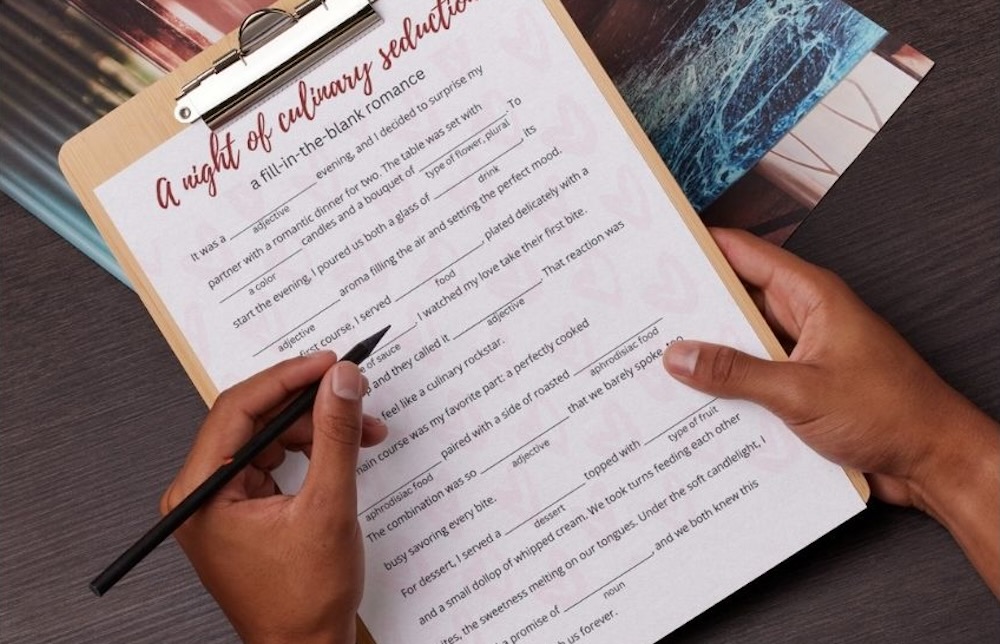 A night of culinary seduction
a fill-in-the-blank romance
It was a ____ evening, and I decided to surprise my
adjective
partner with a romantic dinner for two. The table was set with
____ candles and a bouquet of ____. To
a color type of flower, plural
start the evening, I poured us both a glass of ____, its
drink
____ aroma filling the air and setting the perfect mood.
adjective
first course, I served ____, plated delicately with a
food
____. I watched my love take their first bite.
of sauce
and they called it ____. That reaction was
adjective
feel like a culinary rockstar.
main course was my favorite part: a perfectly cooked
____ paired with a side of roasted ____
aphrodisiac food aphrodisiac food
The combination was so ____ that we barely spoke
adjective
busy savoring every bite.
For dessert, I served a ____ topped with ____
dessert type of fruit
and a small dollop of whipped cream. We took turns feeding each other
the sweetness melting on our tongues. Under the soft candlelight, I
promise of ____, and we both knew this
noun
us forever.